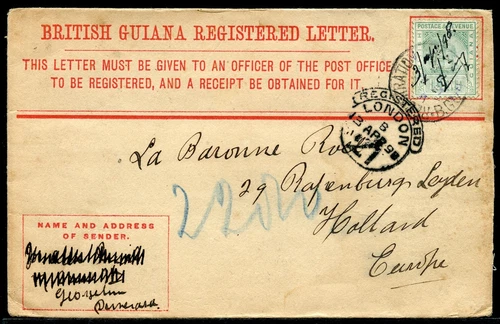 BRITISH GUIANA REGISTERED LETTER.
THIS LETTER MUST BE GIVEN TO AN OFFICER OF THE POST OFFICE
TO BE REGISTERED, AND A RECEIPT BE OBTAINED FOR IT.
POSTAGE & REVENUE
REGISTERED
LONDON
B
AP
La Baronne
29 Leyden
Holland
Europe
NAME AND ADDRESS
OF SENDER.
Demerara